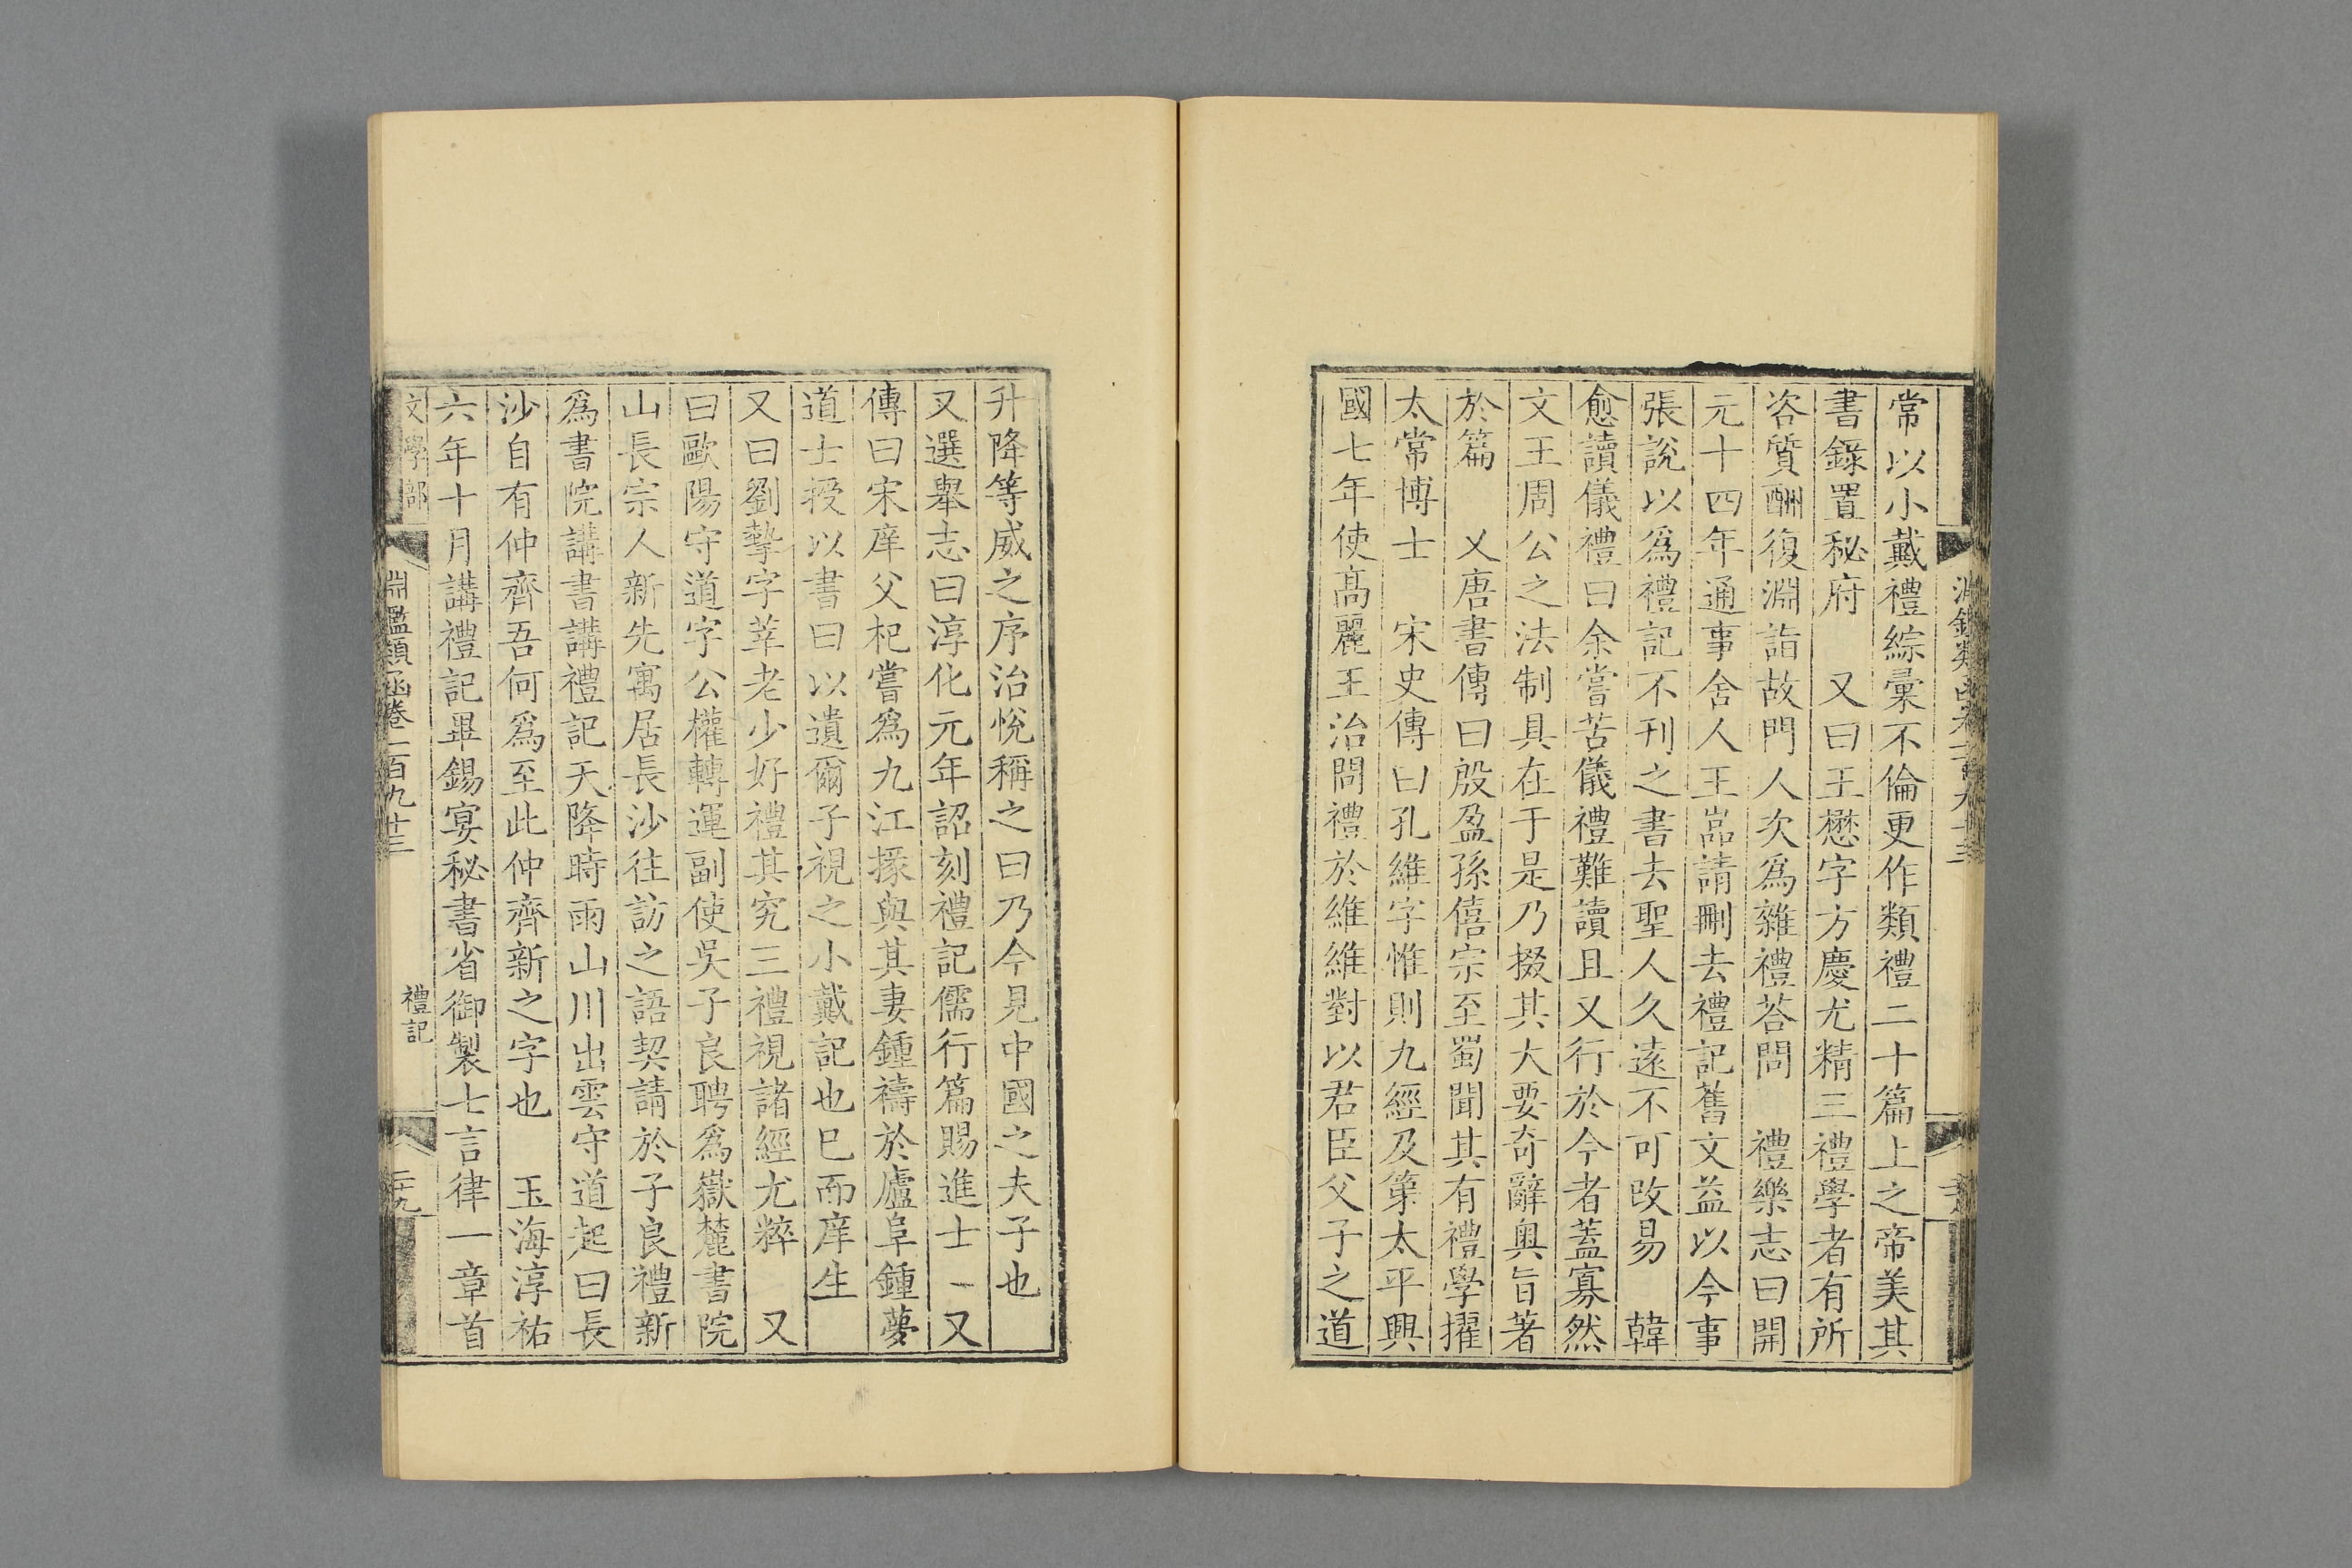 常以小戴禮綜彙不倫更作類禮二十篇上之帝美其
書錄置秘府　又曰王懋字方慶尤精三禮學者有所
咨質酬復淵詣故門人次爲雜禮荅問　禮樂志曰開
元十四年通事舍人王嵓請刪去禮記舊文益以今事
張說以爲禮記不刊之書去聖人久遠不可改易　韓
愈讀儀禮曰余嘗苦儀禮難讀且又行於今者蓋寡然
文王周公之法制具在于是乃掇其大要奇辭奧旨著
於篇　又唐書傳曰殷盈孫僖宗至蜀聞其有禮學擢
太常博士　宋史傳曰孔維字惟則九經及第太平興
國七年使高麗王治問禮於維維對以君臣父子之道
升降等威之序治悅稱之曰乃今見中國之夫子也
又選舉志曰淳化元年詔刻禮記儒行篇賜進士　又
傳曰宋庠父杞嘗爲九江掾與其妻鍾禱於廬阜鍾夢
道士授以書曰以遺爾子視之小戴記也已而庠生
又曰劉摯字莘老少好禮其究三禮視諸經尤粹　又
曰歐陽守道字公權轉運副使吳子良聘爲嶽麓書院
山長宗人新先寓居長沙往訪之語契請於子良禮新
爲書院講書講禮記天降時雨山川出雲守道起曰長
沙自有仲齊吾何爲至此仲齊新之字也　玉海淳祐
六年十月講禮記畢錫宴秘書省御製七言律一章首
文學部
淵鑑類函卷一百九十三
禮記
二十九